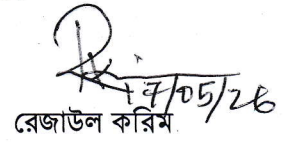 17/05/26
রেজাউল করিম